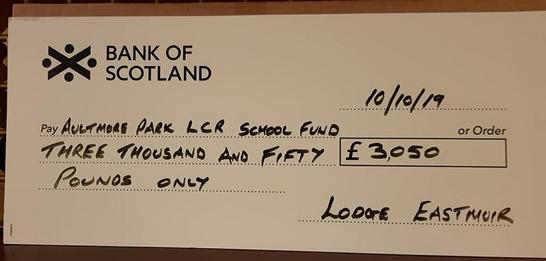 BANK OF
SCOTLAND
10/10/19
Pay AULTMORE PARK LCR SCHOOL FUND or Order
THREE THOUSAND AND FIFTY £ 3,050
POUNDS ONLY
LODGE EASTMUIR